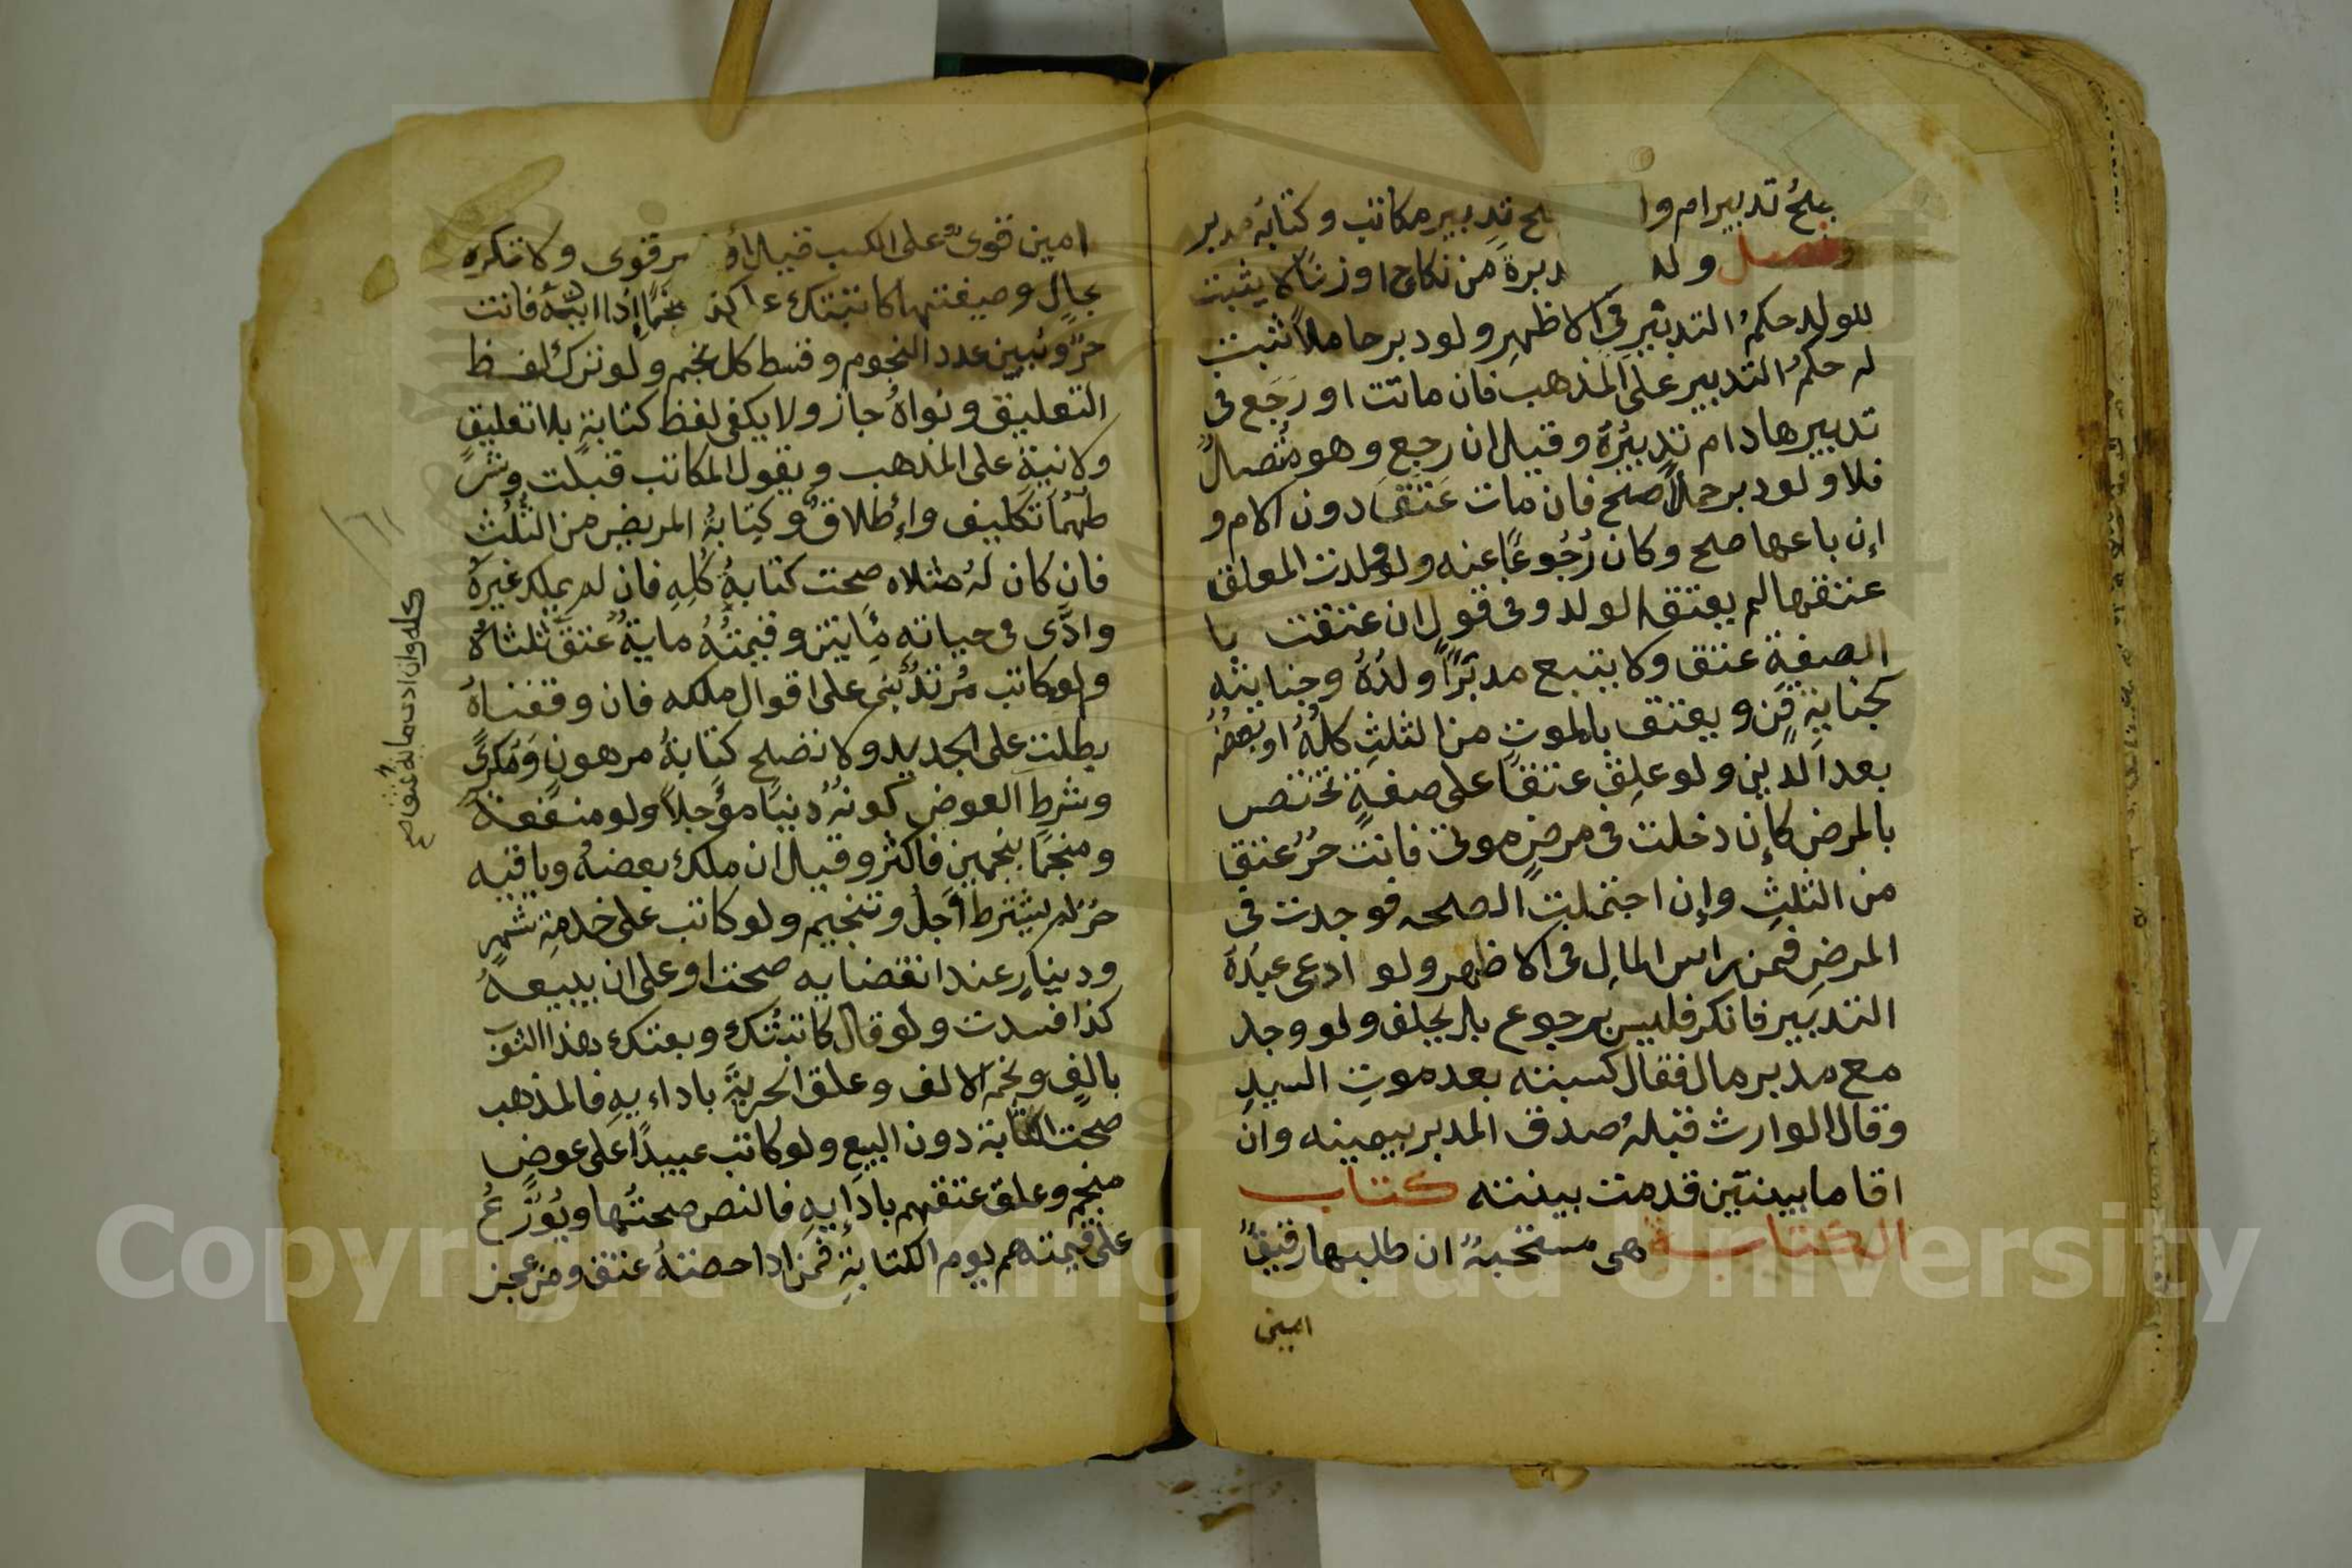 يصح تدبير ام و ا صح تدبير مكاتب وكتابة مدبر
فصل ولد دبرة من نكاح او زنًا لا يثبت
للولد حكمُ التدبير في الاظهر ولو دبر حاملاً ثبت
له حكمُ التدبير على المذهب فان ماتت او رجع في
تدبيرها دام تدبيرُهُ وقيل ان رجع وهو متصل
فلا ولو دبر حملاً صح فان مات عتق دون الام و
إن باعها صح وكان رُجُوعًا عنه ولو ولدت المعلق
عتقها لم يعتق الولد وفي قول ان عتقت با
الصفةِ عتق ولا يتبع مدبَّرًا ولدُهُ وجنايته
كجنايةِ قنٍ ويعتق بالموتِ من الثلثِ كلُّهُ او بعضُهُ
بعد الدين ولو علق عتقًا على صفةٍ تختص
بالمرض كإن دخلت في مرض موتي فانت حُرٌ عتق
من الثلثِ وإن احتملت الصحه فوجدت في
المرضِ فمن راس المالِ في الاظهر ولو ادعى عبدُهُ
التدبير فانكر فليس برجوع بل يحلف ولو وجد
مع مدبر مال فقال كسبته بعد موتِ السيدِ
وقال الوارث قبلهُ صدق المدبر بيمينه وان
اقاما بينتين قدمت بينته كتاب
الكتابة هي مستحبةٌ ان طلبها رقيقٌ
امين
امين قوىٌ على الكسب قيل او ير قوى ولا تكره
بحالٍ وصيغتها كاتبتك على كذا نجمًا إذا اديته فانت
حرٌ ويُبين عدد النجوم وقسط كل نجم ولو ترك لفظ
التعليق ونواهُ جاز ولا يكفي لفظ كتابةٍ بلا تعليقٍ
ولا نيةٍ على المذهب ويقول المكاتب قبلت وشر
طهُمَا تكليف وإطلاقٌ وكتابةُ المريض من الثُلُث
فان كان لهُ مثلاه صحت كتابةُ كُلِهِ فان لم يملك غيرهُ
وادَّى في حياته مِايتين وقيمتُهُ مايةٌ عتق ثلثاهُ
ولو كاتب مُرتدٌ بُني على اقوال ملكه فان وقفناهُ
بطلت على الجديد ولا تصلح كتابةُ مرهونٍ وَمُكرًى
وشرط العوض كونهُ دينًا مؤجلاً ولو منفعة
ومنجمًا بنجمين فاكثر وقيل ان ملك بعضهُ وباقيه
حرٌ لم يشترط أجلٌ وتنجيم ولو كاتب على خدمةِ شهرٍ
ودينارٍ عند انقضايه صحت او على ان يبيعهُ
كذا فسدت ولو قال كاتبتُك وبعتك هذا الثوب
بالفٍ ونجم الالف وعلق الحريةَ باداءيهِ فالمذهب
صحت الكتابة دون البيعِ ولو كاتب عبيدًا على عوضٍ
منجم وعلق عتقهم بادَايِهِ فالنص صحتُها ويُوَزَّعُ
على قيمتهم يوم الكتابةِ فمن ادا حصتهُ عتق ومن عجز
كله وان ادت مايه عتق صح